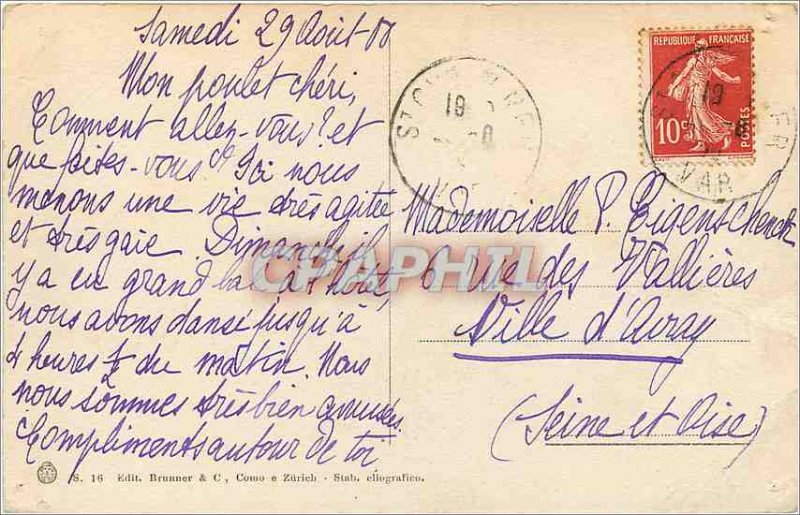 Samedi 29 Août
Mon poulet chéri,
Comment allez-vous? et
que faites-vous? Ici nous
menons une vie très agitée
et très gaie. Dimanche il
y a eu grand bal à l'hôtel,
nous avons dansé jusqu'à
4 heures ½ du matin. Nous
nous sommes très bien amusées.
Compliments autour de toi
S. 16 Edit. Brunner & C., Como e Zürich - Stab. eliografico.
REPUBLIQUE FRANÇAISE
10c
POSTES
VAR
Mademoiselle P. Eigenschenck
6 rue des Vallières
Ville d'Avray
(Seine et Oise)
CPAPHIL